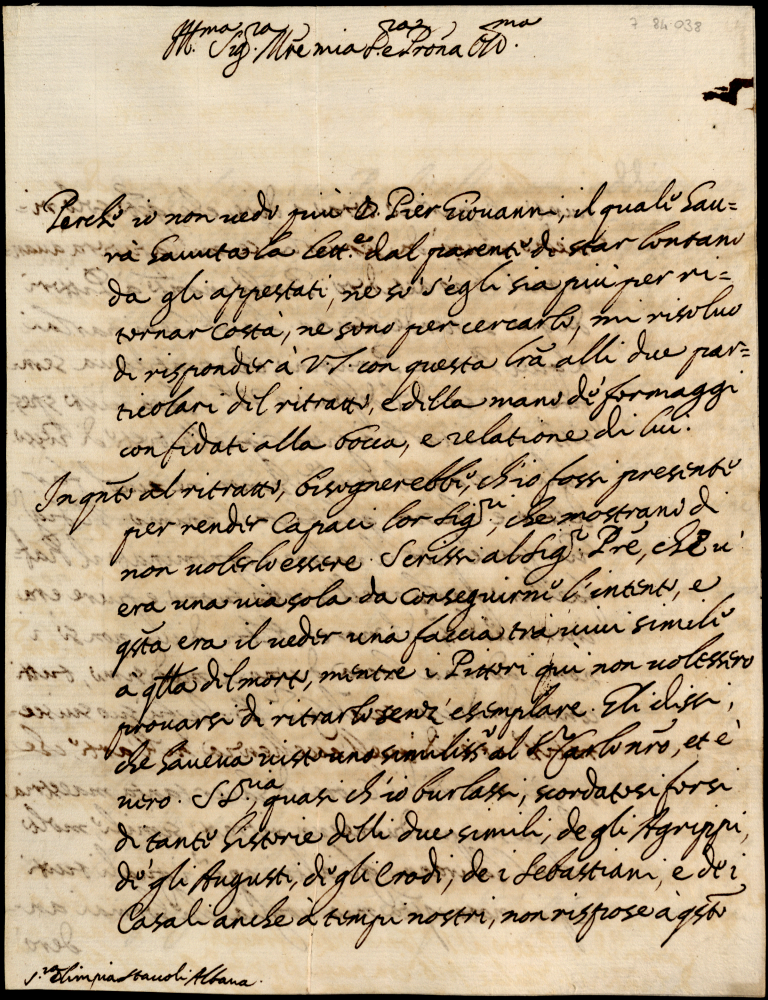 7 84 038
Ill.ma Sig.ra M're mia e P'rona
Perche io non uedo più D. Pier Giovanni, il quale hau=
rà hauuta la lett.a dal parente di star lontano
da gli appestati, ne so s'egli sia più per ri=
tornar costà, ne sono per cercarlo, mi risoluo
di risponder à V.S. con questa l'ra alli due par=
ticolari dil ritratto, e dilla mano de' formaggi
confidati alla bocca, e relatione di lui.
In q'nto al ritratto, bisognerebbe, ch'io fossi presente
per render capaci lor Sig.ri, che mostrano di
non uolerlo essere. Scrissi al Sig.r P're, che u'
era una uia sola da conseguirne l'intento, e
q'sta era il ueder una faccia tra uiui simile
a q'lla dil morto, mentre i Pittori qui non uolessero
prouarsi di ritrarlo senz' esemplare. Gli dissi,
che haueua uisto uno similiss.o al Carlo n'ro, et è
uero. S.S.ria, quasi ch'io burlassi, scordatosi forsi
di tante historie delli due simili, de gli Agrippi,
de' gli Augusti, de gli Erodi, de i Sebastiani, e de i
Casali anche à tempi nostri, non rispose à q'sto
S.ra Olimpia Stauoli Albana.